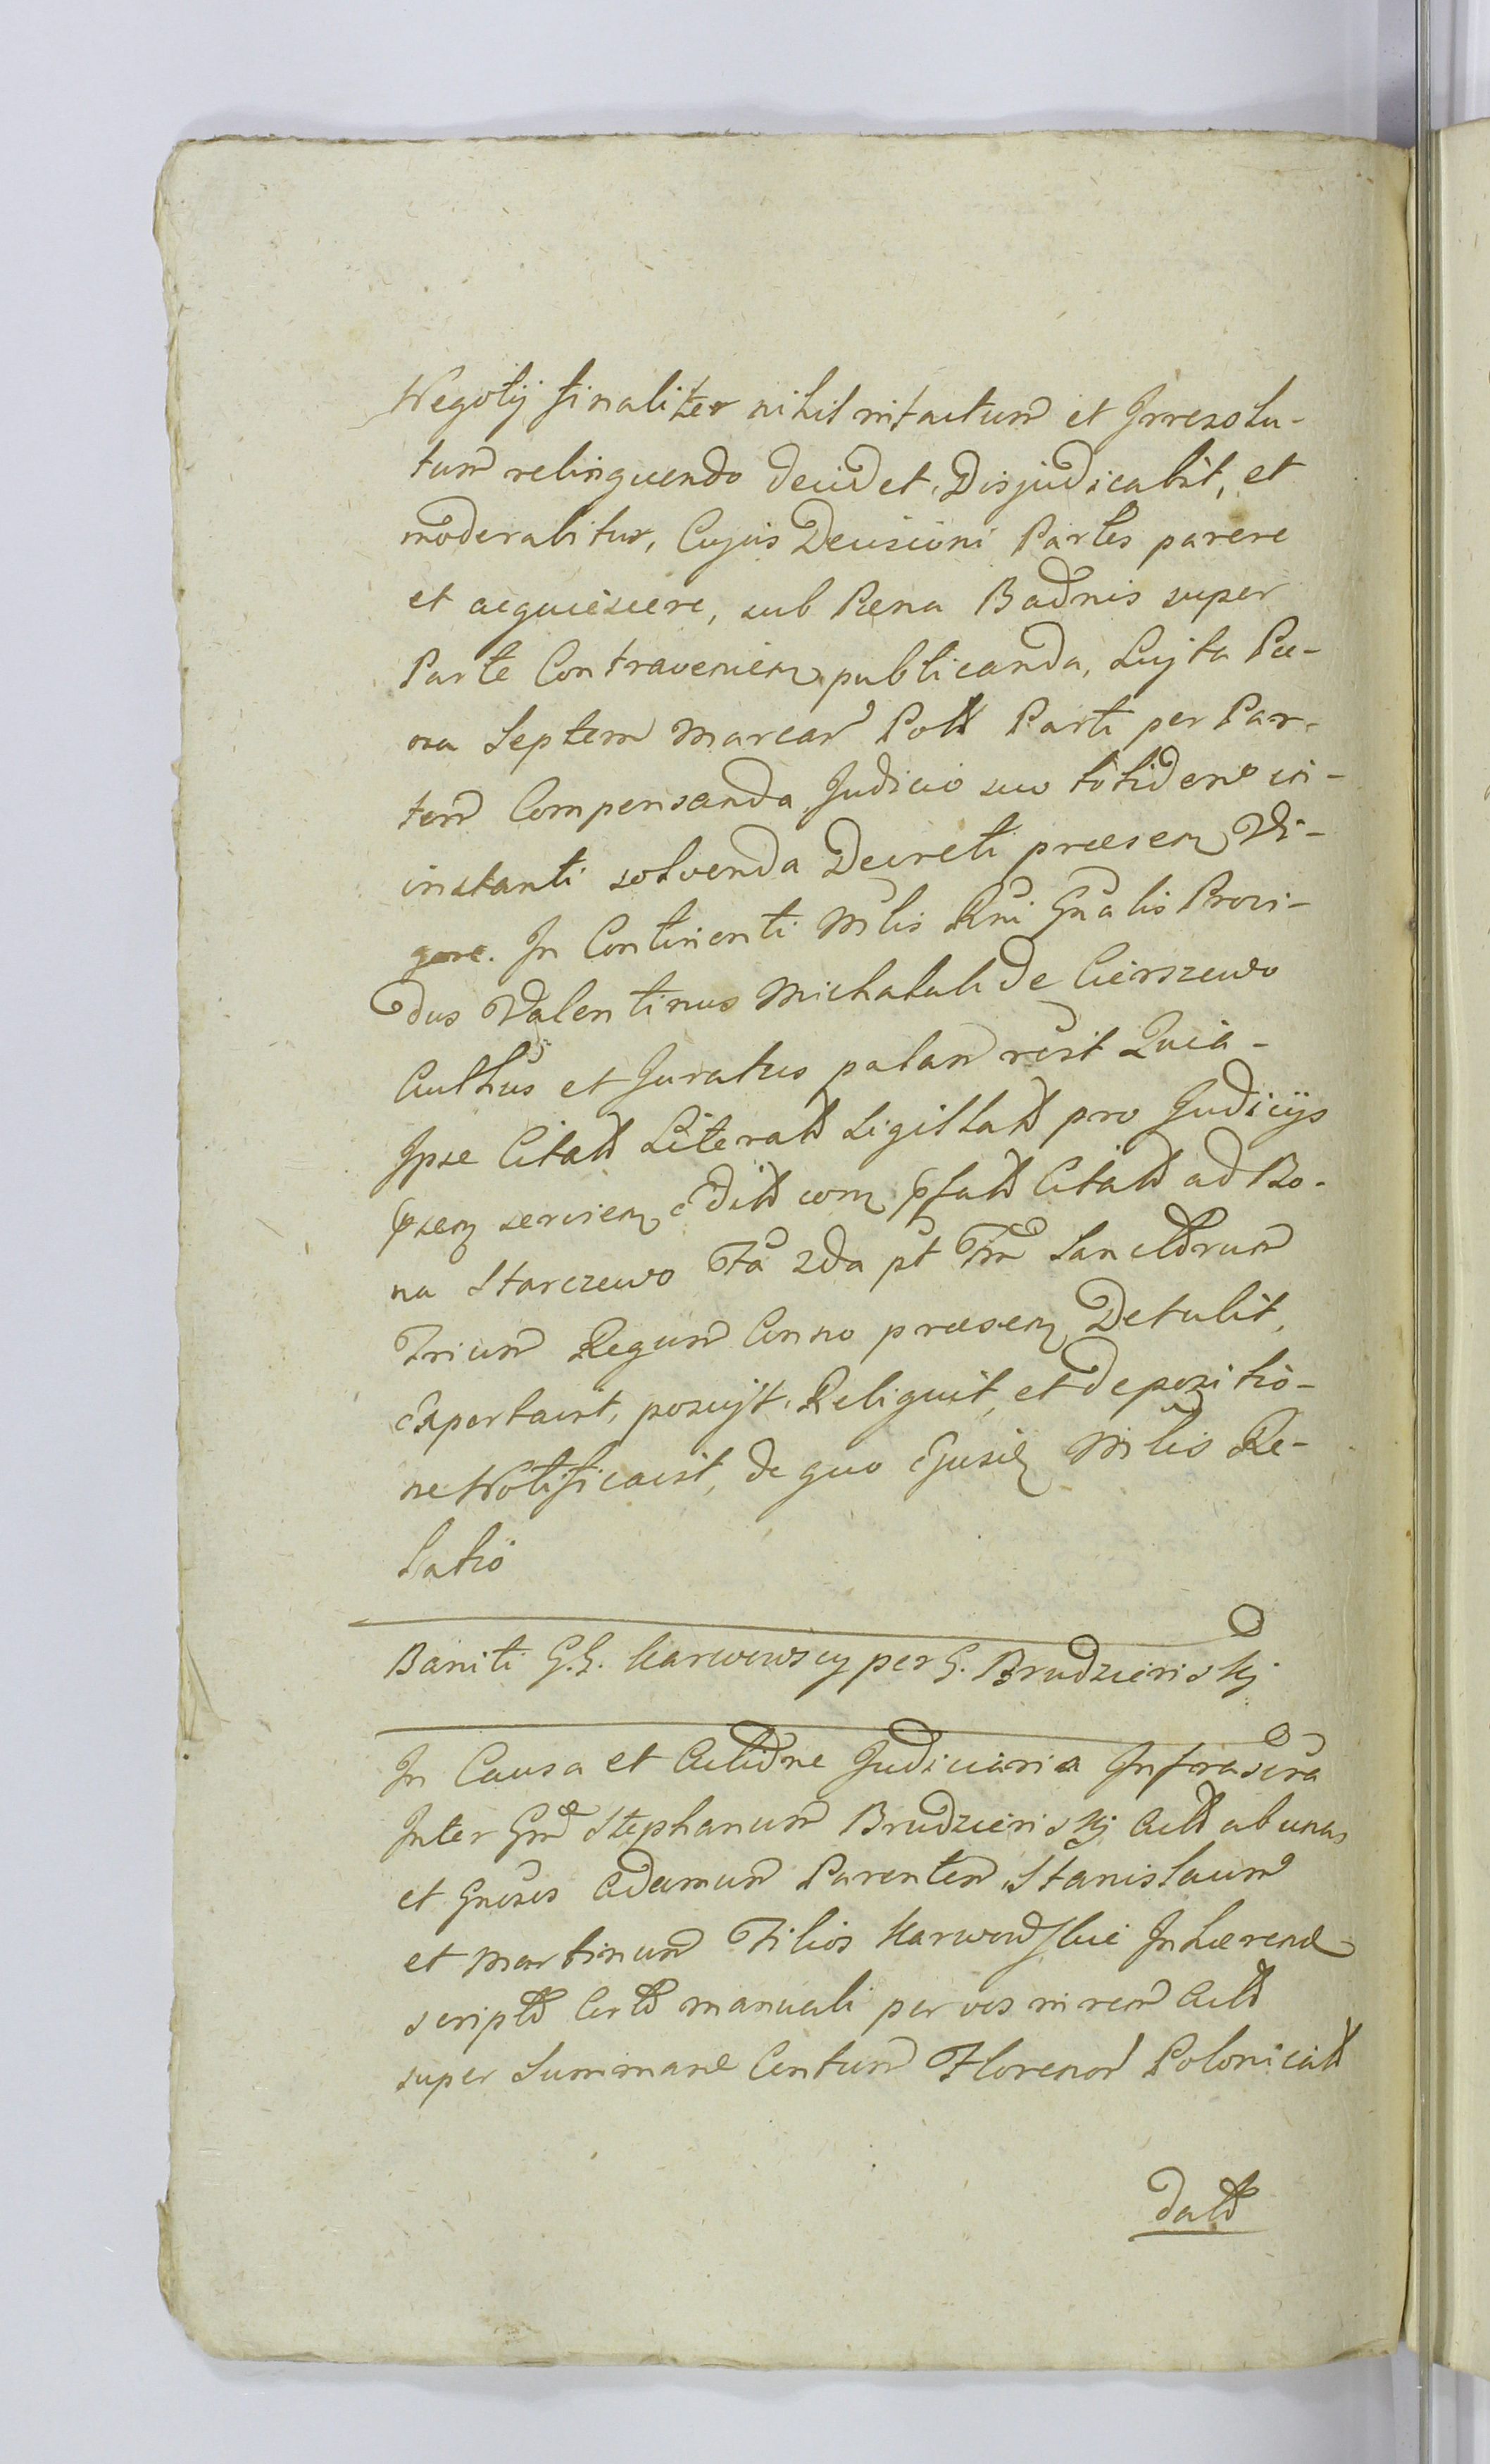 Negotij finaliter nihil infactum et Irresolu-
tum relinquendo decidet, Disjudicabit, et
moderabitur, Cujus Decisioni Partes parere
et acquiescere, sub Poena Badnis super
Parte Contravenien publicanda, Lujta Poe-
na Septem Marcar Poll Parti per Par-
tem Compensanda, Judicio suo totidem in-
instanti solvenda Decreti praesen Vi-
gore. In Continenti Mlis Rni Gnalis Provi-
dus Valentinus Michalak de Cierszewo
Authus et Juratus palam rcsit Quia-
Ipse Citatt Literatt Sigillatt pro Judicijs
psen servien editt com pfatt Citatt ad Bo-
na Starczewo Fa 2da pt Fm Sanctorum
Trium Regum Anno praesen Detulit,
Exportavit, posuijt, Reliquit, et depozitio-
ne Notificavit, de quo Ejusd Mlis Re-
latio
Baniti G.G. Karwowscy per G. Brudzieriskj
In Causa et Actione Judiciaria Infrascra
Inter Gm Stephanum Brudzieriskj Actt ab una
et Gnosos Adamum Parentem, Stanislaum
et Martinum Filios Karwowskie Inhaerend
scriptt Certt manuali per vos in rem Actt
super Summam Centum Florenor Polonicatt
datt